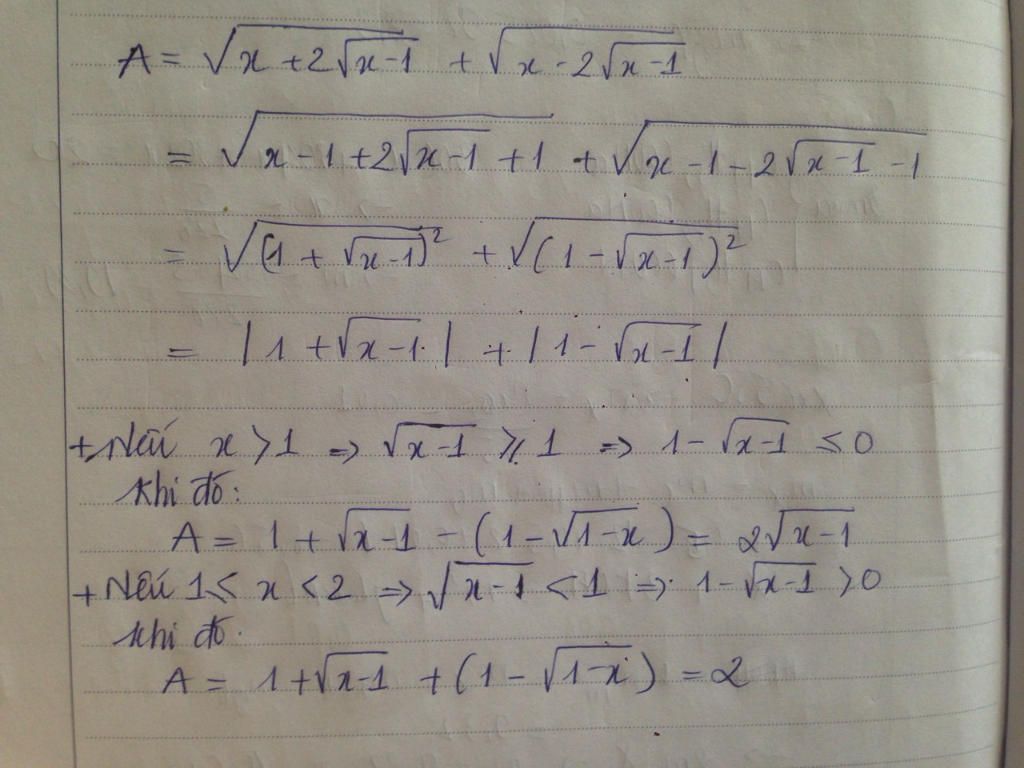 A = √(x + 2√(x-1)) + √(x - 2√(x-1))
= √(x - 1 + 2√(x-1) + 1) + √(x - 1 - 2√(x-1) - 1)
= √((1 + √(x-1))²) + √((1 - √(x-1))²)
= |1 + √(x-1)| + |1 - √(x-1)|
+ Nếu x > 1 => √(x-1) ⩾ 1 => 1 - √(x-1) ≤ 0
Khi đó:
A = 1 + √(x-1) - (1 - √(1-x)) = 2√(x-1)
+ Nếu 1 ≤ x < 2 => √(x-1) < 1 => 1 - √(x-1) > 0
Khi đó.
A = 1 + √(x-1) + (1 - √(1-x)) = 2